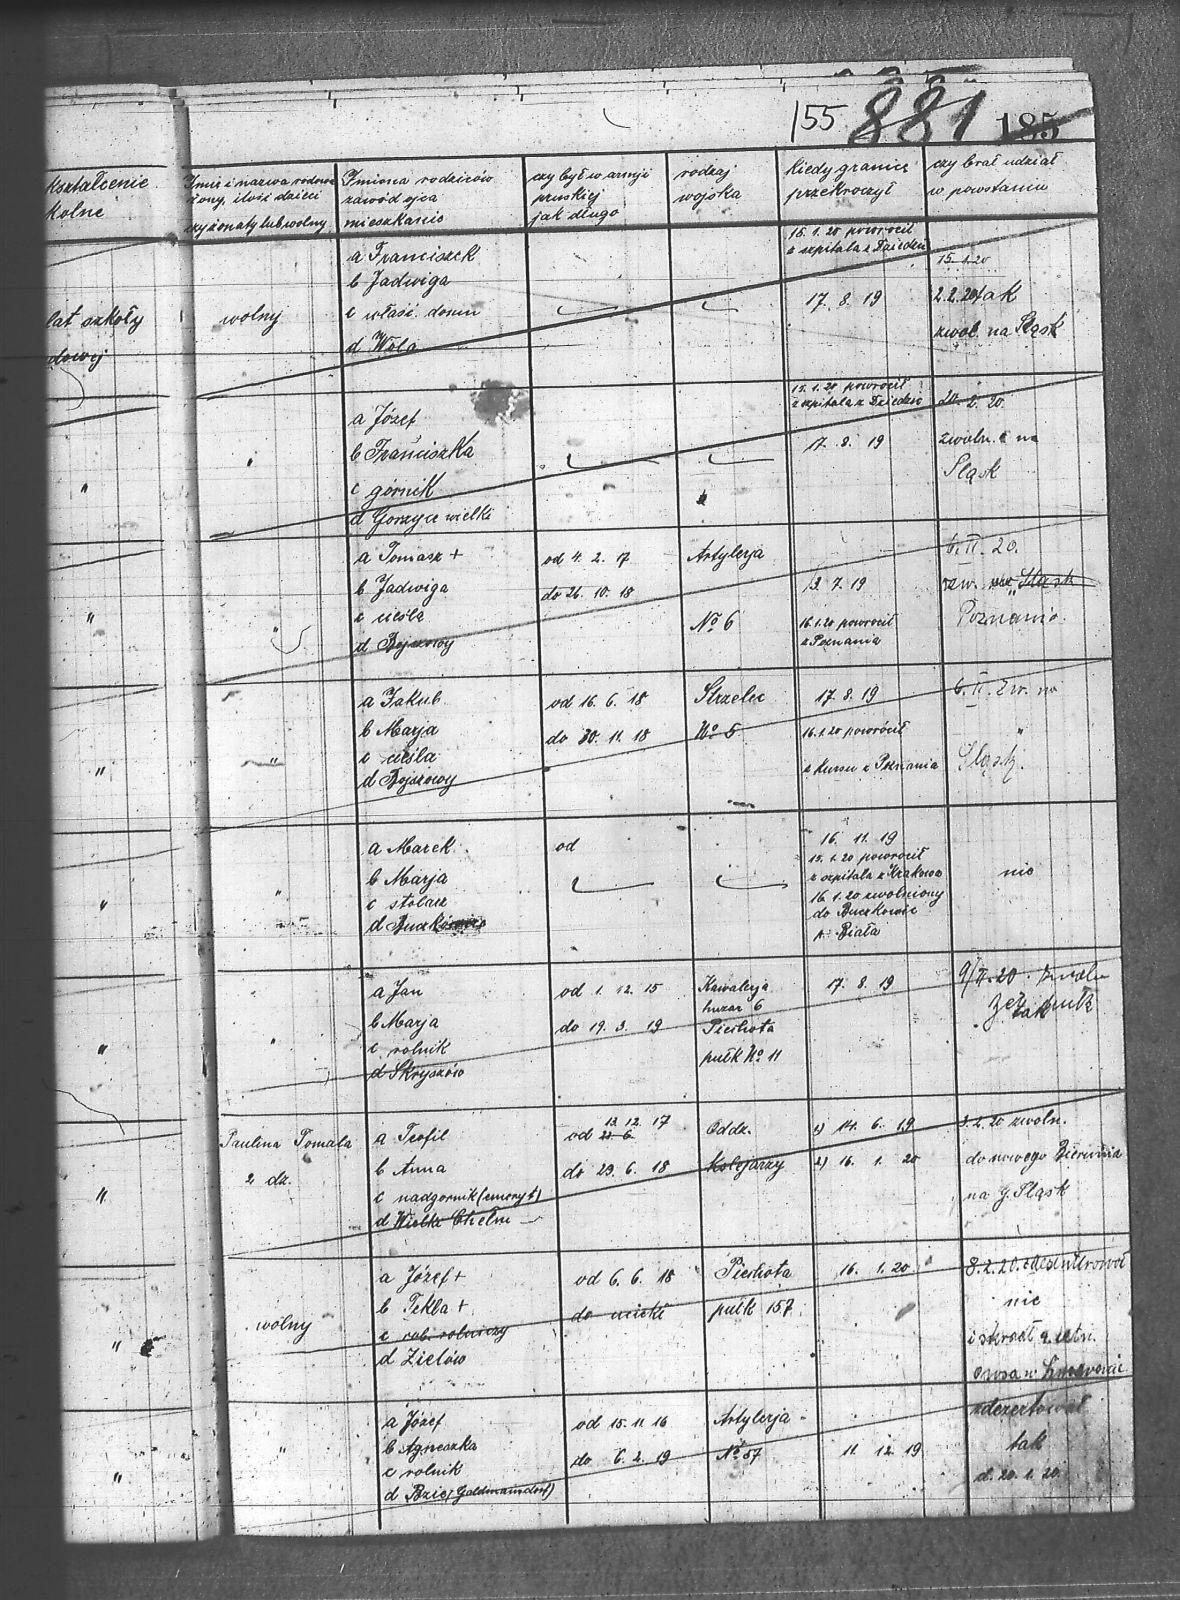 155 881 185
kształcenie
kolne
Imię i nazwa rodowa
żony, ilość dzieci
czy żonaty lub wolny
Imiona rodziców
zawód ojca
mieszkanie
czy był w armji
pruskiej
jak długo
rodzaj
wojska
Kiedy granicę
przekroczył
czy brał udział
w powstaniu
lat szkoły
dowej
wolny
a Franciszek
b Jadwiga
c właśc. domu
d Wola
15.1.20 powrócił
z szpitala z Dziedzic
17. 8. 19
15.1.20
2.2.20 tak
zwol. na Śląsk
"
"
a Józef
b Franciszka
c górnik
d Gorzyce wielki
15.1.20 powrócił
z szpitala z Dziedzic
17. 8. 19
20. 2. 20.
zwoln. na
Śląsk
"
"
a Tomasz +
b Jadwiga
c cieśla
d Bojszowy
od 4. 2. 17
do 26. 10. 18
Artylerja
No 6
3. 7. 19
16.1.20 powrócił
z Poznania
6. II. 20.
zw. na Śląsk
Poznania.
"
"
a Jakub
b Marja
c cieśla
d Bojszowy
od 16. 6. 18
do 30. 11. 18
Strzelec
No 5
17. 8. 19
16.1.20 powrócił
z kursu z Poznania
6. II. zw. na
Śląsk.
"
"
a Marek
b Marja
c stolarz
d Buczkowice
od
16. 11. 19
15.1.20 powrócił
z szpitala z Krakowa
16.1.20 zwolniony
do Buczkowic
p. Biała
nie
"
"
a Jan
b Marja
c rolnik
d Skryszów
od 1. 12. 15
do 19. 3. 19
Kawalerja
huzar 6
Piechota
pułk No 11
17. 8. 19
9/II. 20.
tak
"
Paulina Tomala
2 dz.
a Teofil
b Anna
c nadgórnik (emeryt)
d Wielki Chełm
13. 12. 17
od 23. 6.
do 29. 6. 18
Oddz.
Kolejarzy
1) 14. 6. 19
2) 16. 1. 20
3.2.20 zwoln.
do nowego Bierunia
na G. Śląsk
"
wolny
a Józef +
b Tekla +
c rob. rolniczy
d Zielów
od 6. 6. 18
do ucieki
Piechota
pułk 157
16. 1. 20
8.2.20.
nie
i skradł
owsa w
"
"
a Józef
b Agneszka
c rolnik
d Bzie (Goldmannsdorf)
od 15. 11. 16
do 6. 2. 19
Artylerja
No 57
11. 12. 19
zdezertował
tak
d. 20. 1. 20.